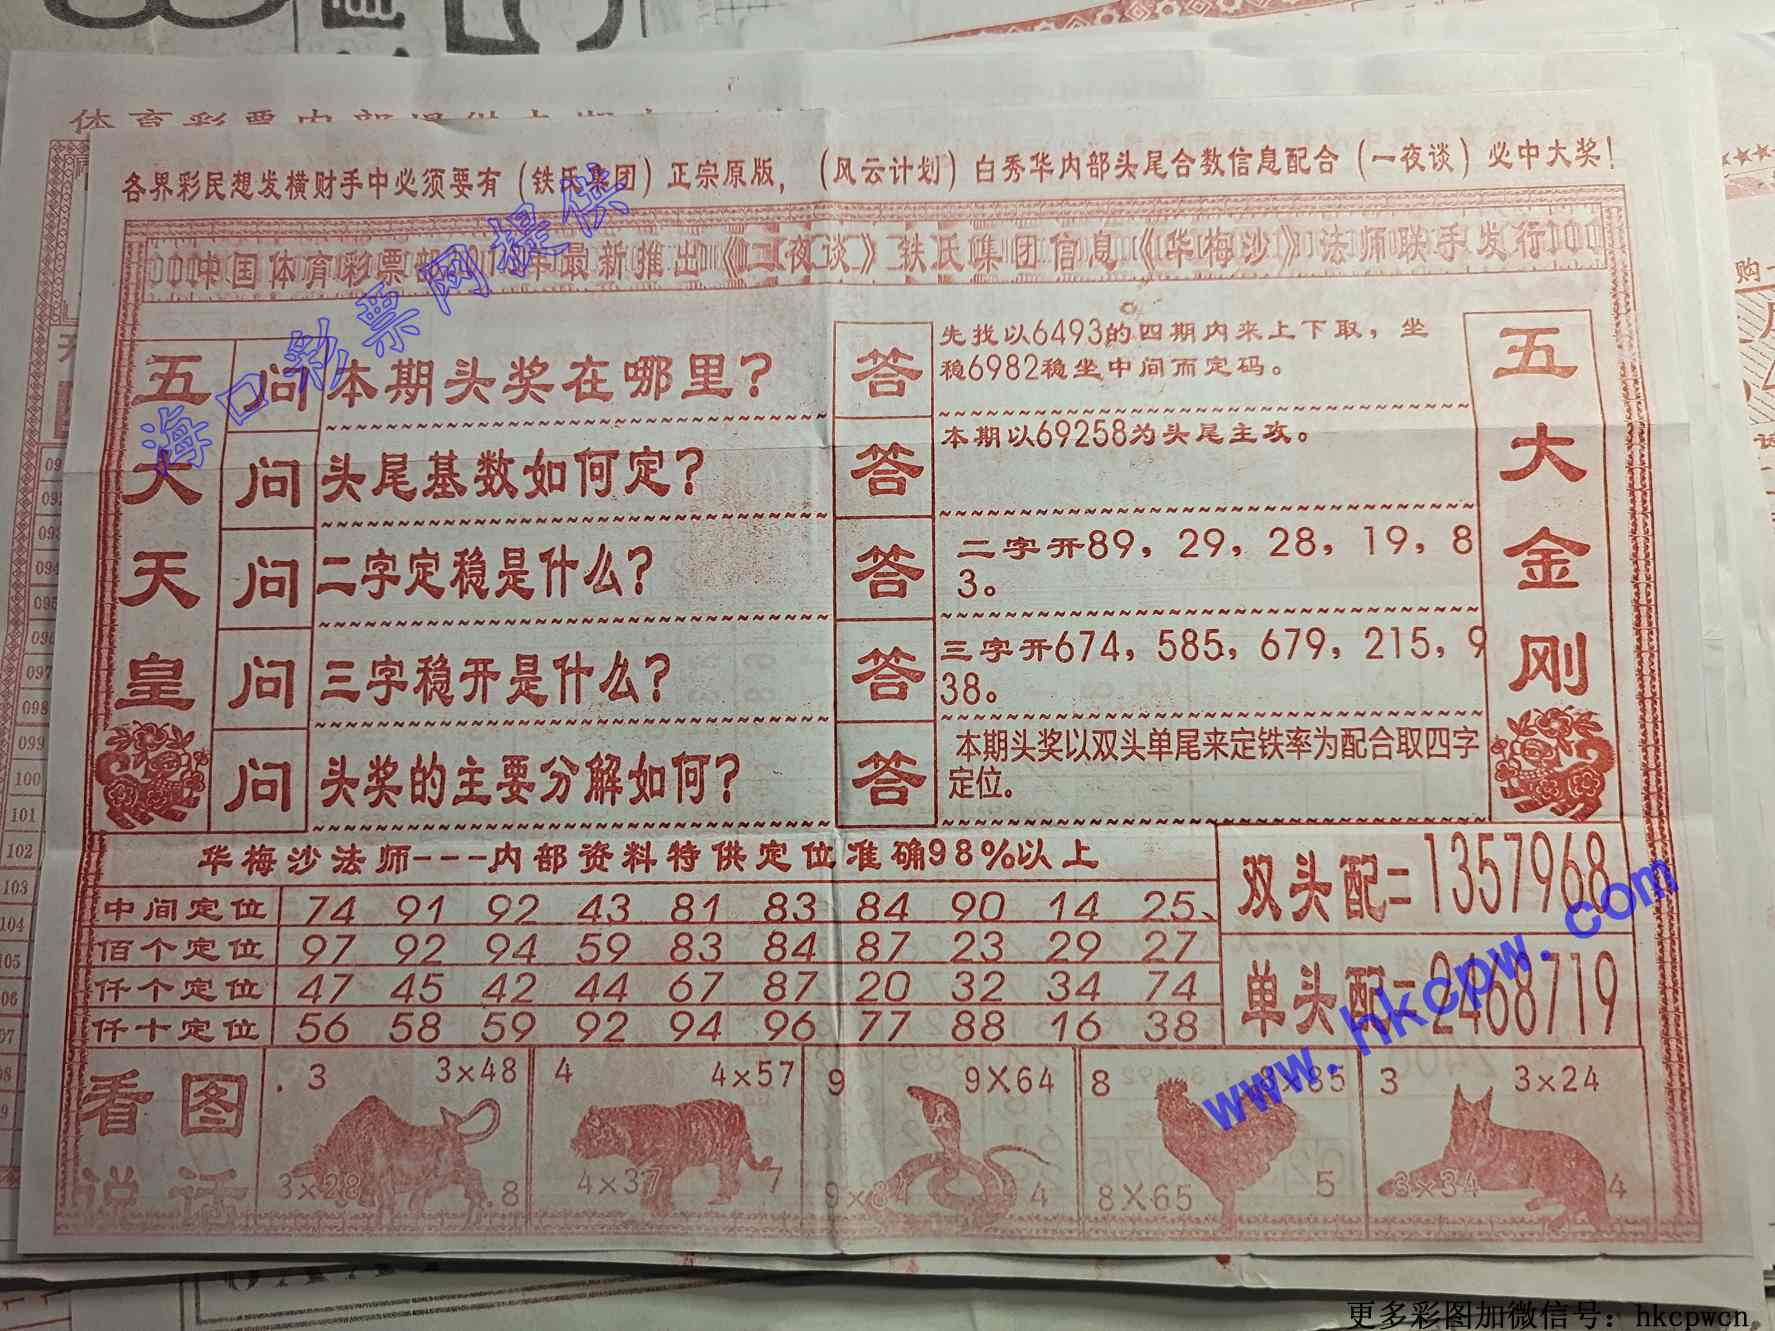 各界彩民想发横财手中必须要有（铁氏集团）正宗原版，（风云计划）白秀华内部头尾合数信息配合（一夜谈）必中大奖！
最新推出《二夜谈》铁氏集团信息《华梅沙》法师联手发行
海口彩票网提供
五大天皇
问 本期头奖在哪里？
答 先找以6493的四期内来上下取，坐
稳6982稳坐中间而定码。
问 头尾基数如何定？
答 本期以69258为头尾主攻。
问 二字定稳是什么？
答 二字开89，29，28，19，8
3。
问 三字稳开是什么？
答 三字开674，585，679，215，9
38。
问 头奖的主要分解如何？
答 本期头奖以双头单尾来定铁率为配合取四字
定位。
五大金刚
华梅沙法师---内部资料特供定位准确98%以上
中间定位 74 91 92 43 81 83 84 90 14 25、
佰个定位 97 92 94 59 83 84 87 23 29 27
仟个定位 47 45 42 44 67 87 20 32 34 74
仟十定位 56 58 59 92 94 96 77 88 16 38
双头配=1357968
单头配=2468719
www.hkcpw.com
看图
说话
3 3×48
3×28 8
4 4×57
4×37 7
9 9×64
9×84 4
8
8×65 5
3 3×24
3×34 4
093
094
095
097
098
099
100
101
102
103
104
更多彩图加微信号：hkcpwcn